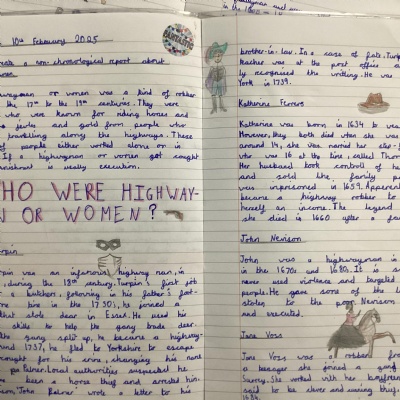 10th February 2025
create a non-chronological report about
women.
highwayman or women was a kind of robber
the 17th to the 19th centuries. They were
who was known for riding horses and
jewels and gold from people who
travelling along the highways. These
of people either worked alone or in
If a highwayman or women got caught
punishment is usually execution.
WHO WERE HIGHWAY-
N OR WOMEN?
Turpin
Turpin was an infamous highway man, in
, during the 18th century. Turpin's first job
a butcher, following in his father's foot-
time in the 1730s, he joined a
that stole deer in Essex. He used his
skills to help the gang trade deer.
the gang split up, he became a highway-
1737, he fled to Yorkshire to escape
for his crime, changing his name
Palmer. Local authorities suspected he
been a horse thief and arrested him.
'John Palmer' wrote a letter to his
brother-in-law. In a case of fate, Turp
teacher was at the post office a
ly recognised the writing. He was
York in 1739.
Katherine Ferrers
Katherine was born in 1634 to wea
However, they both died when she was
around 14, she was married her step-f
who was 16 at the time, called Thom
Her husband took control of he
and sold the family
was imprisoned in 1659. Apparent
became a highway robber to
herself an income. The legend
she died in 1660 after a fa
John Nevison
John was a highwayman in
in the 1670s and 1680s. It is s
never used violence and targeted
people. He gave some of his
stolen to the poor. Nevison
and executed.
Jane Voss
Jane Voss was a robber from
a teenager she joined a gang
Surrey. She worked with her boyfrien
said to be clever and cunning thief.
1684.